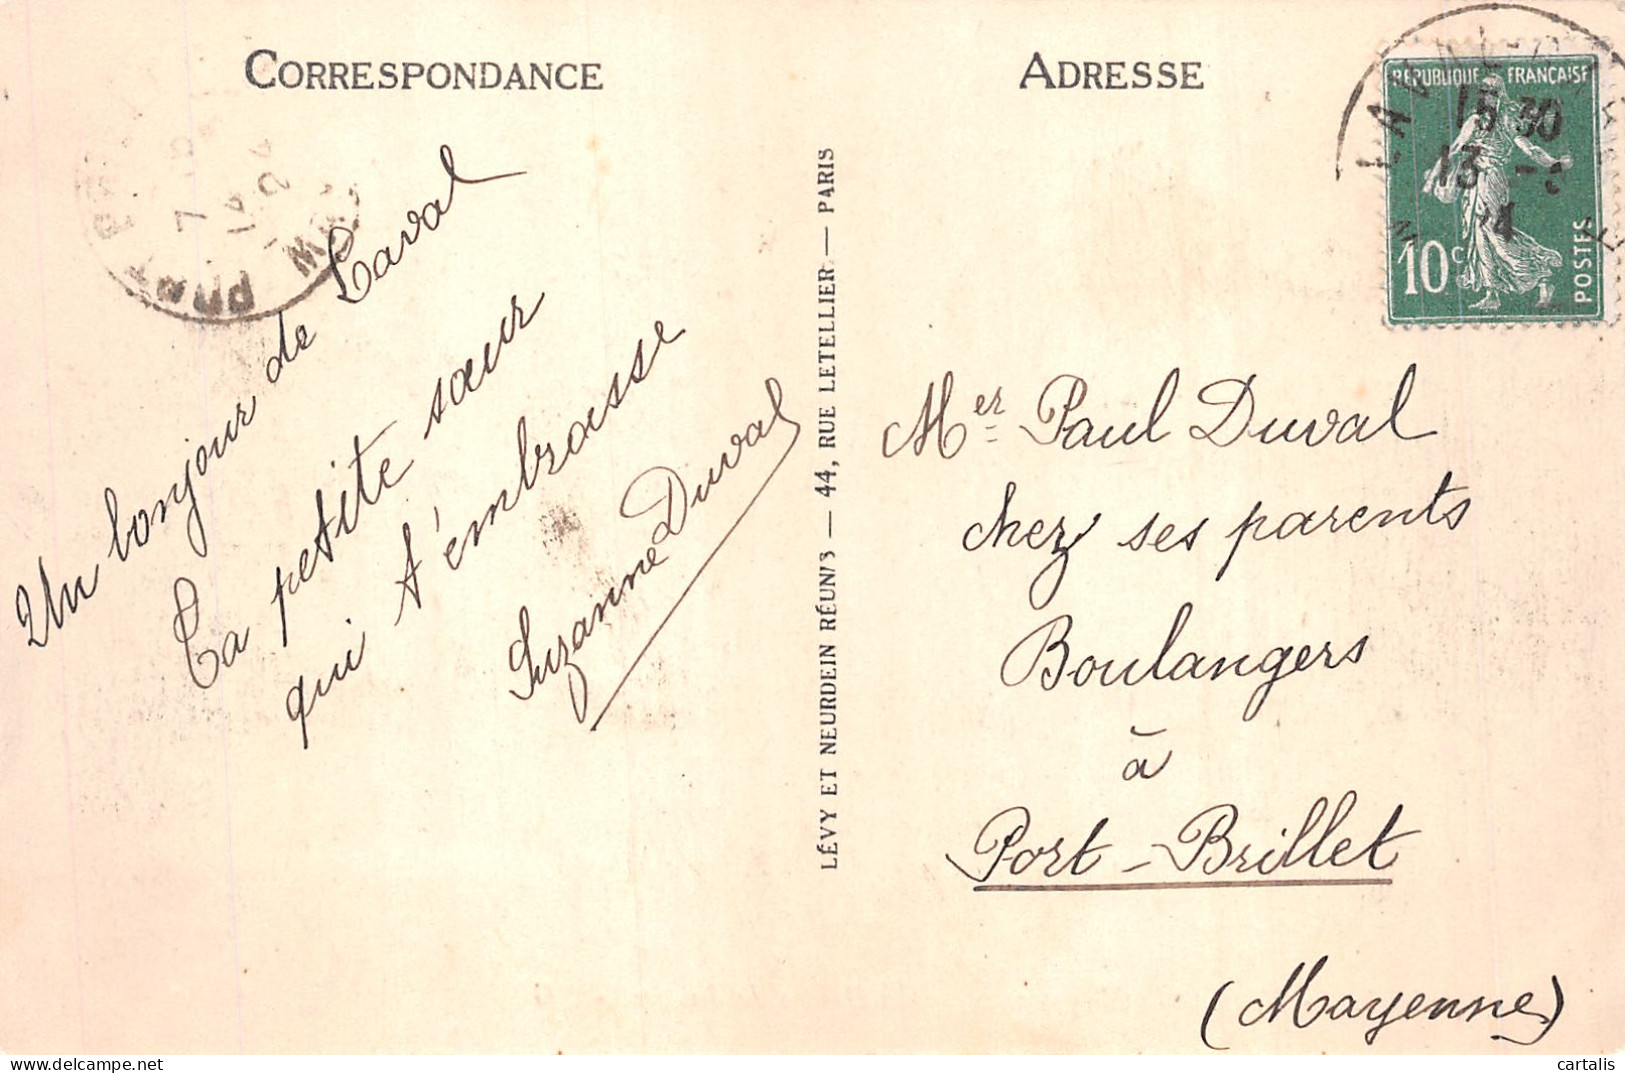 CORRESPONDANCE
Un bonjour de Laval
Ta petite sœur
qui t'embrasse
Suzanne Duval
LÉVY ET NEURDEIN RÉUNIS — 44, RUE LETELLIER — PARIS
ADRESSE
RÉPUBLIQUE FRANÇAISE
10c
POSTES
LAVAL
15 30
13
Mer Paul Duval
chez ses parents
Boulangers
à
Port-Brillet
(Mayenne)
cartalis